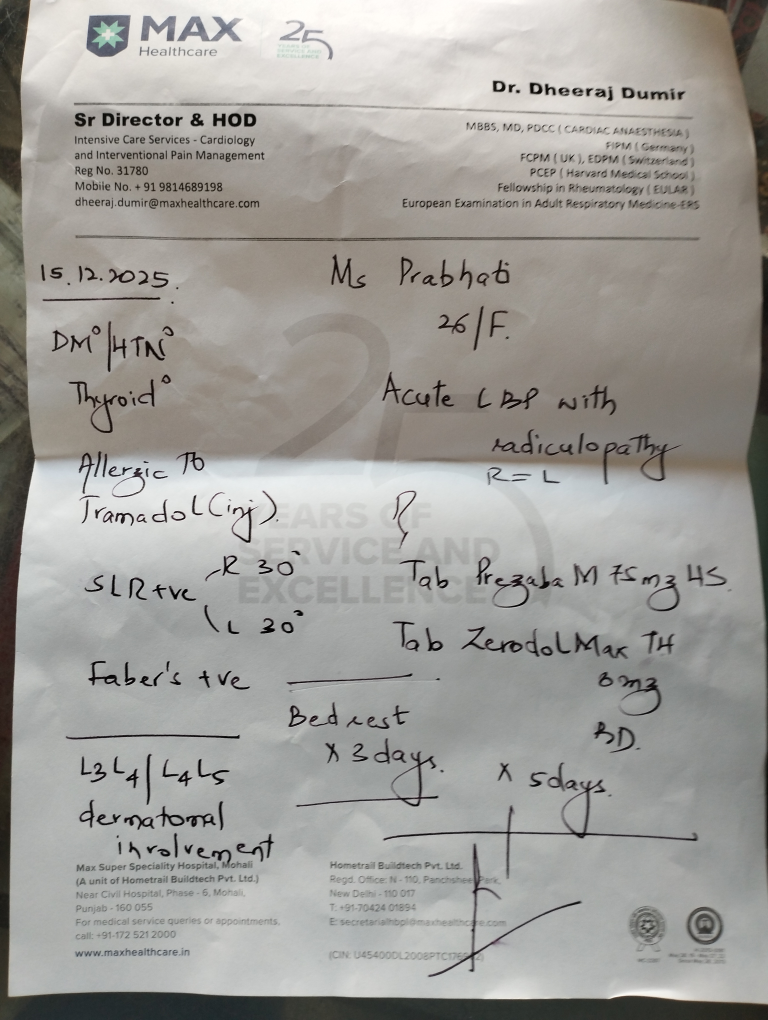 MAX
Healthcare
25
YEARS OF
SERVICE AND
EXCELLENCE
Dr. Dheeraj Dumir
Sr Director & HOD
Intensive Care Services - Cardiology
and Interventional Pain Management
Reg No. 31780
Mobile No. + 91 9814689198
dheeraj.dumir@maxhealthcare.com
MBBS, MD, PDCC ( CARDIAC ANAESTHESIA )
FIPM ( Germany )
FCPM ( UK ), EDPM ( Switzerland )
PCEP ( Harvard Medical School )
Fellowship in Rheumatology ( EULAR )
European Examination in Adult Respiratory Medicine-ERS
15.12.2025.
Ms Prabhati
26/F.
DM°/HTN°
Thyroid°
Allergic To
Tramadol (inj).
SLR +ve
R 30°
L 30°
Faber's +ve
L3L4/L4L5
dermatomal
involvement
Acute LBP with
radiculopathy
R = L
Tab Pregaba M 75mg HS.
Tab Zerodol Max TH
8mg
BD.
x 5days.
Bed rest
x 3days.
25
YEARS OF
SERVICE AND
EXCELLENCE
Max Super Speciality Hospital, Mohali
(A unit of Hometrail Buildtech Pvt. Ltd.)
Near Civil Hospital, Phase - 6, Mohali,
Punjab - 160 055
For medical service queries or appointments,
call: +91-172 521 2000
www.maxhealthcare.in
Hometrail Buildtech Pvt. Ltd.
Regd. Office: N - 110, Panchsheel Park,
New Delhi - 110 017
T: +91-70424 01894
E: secretarialhbpl@maxhealthcare.com